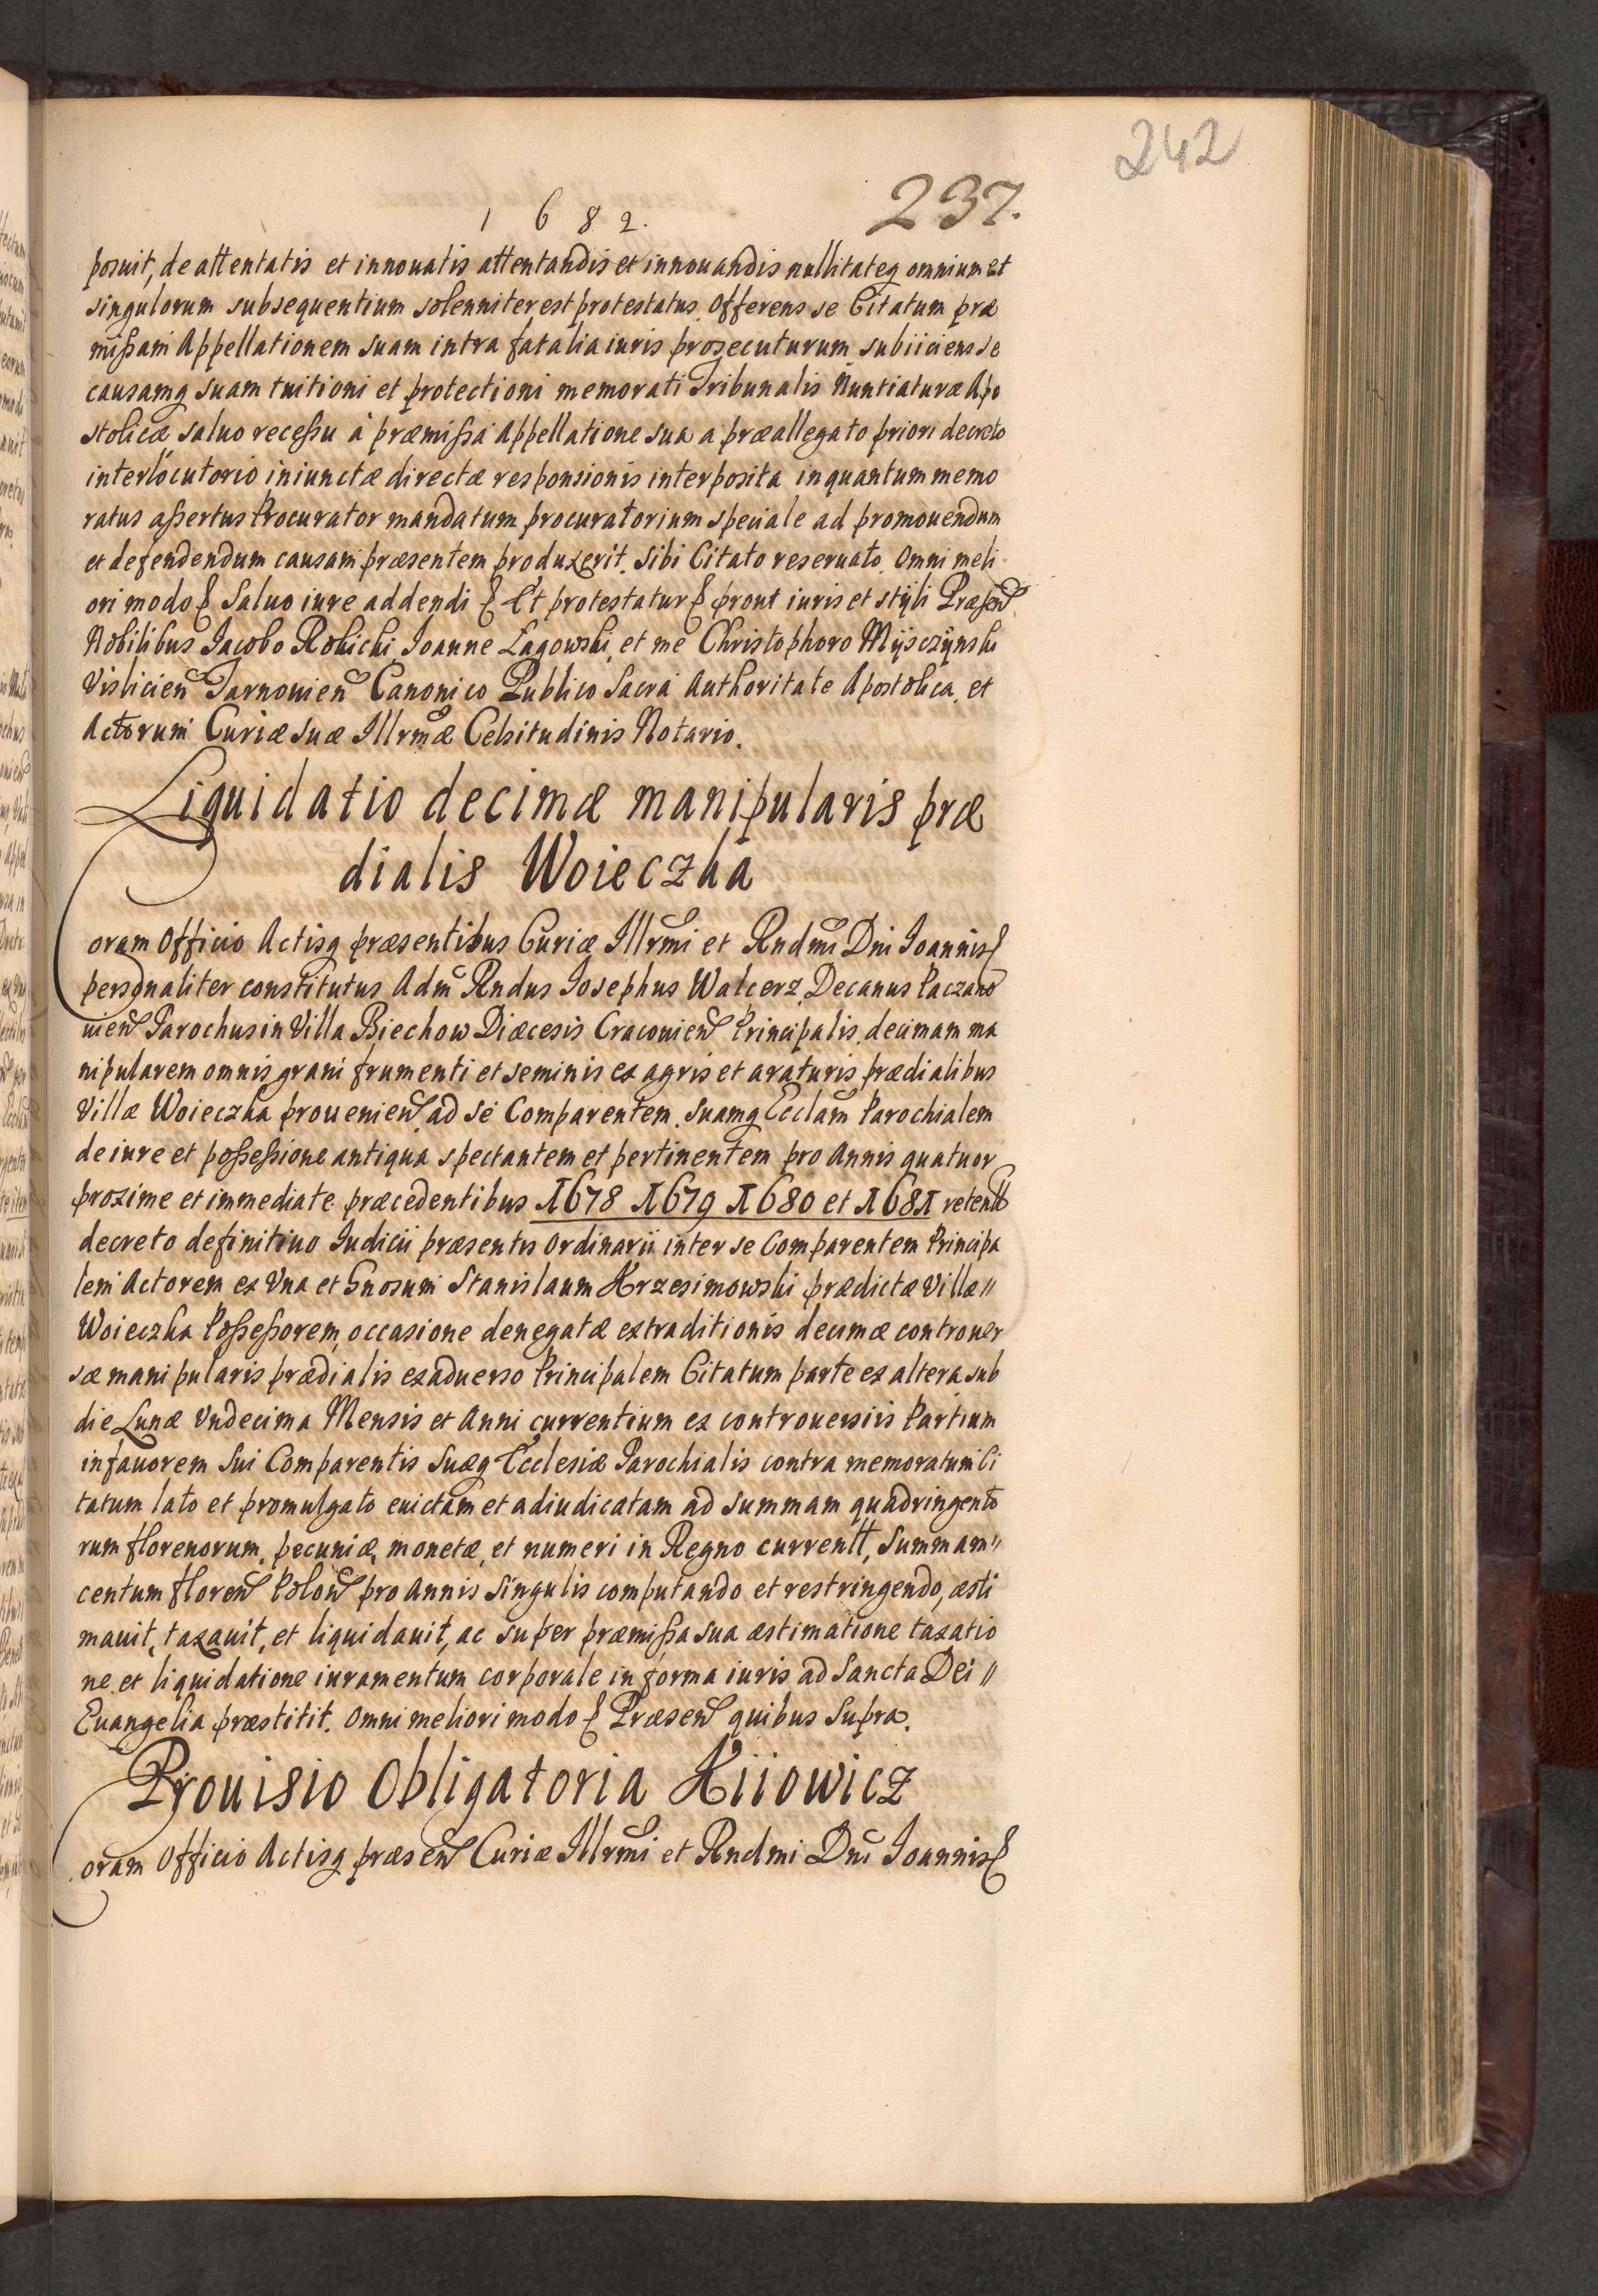 242
237.
1682.
posuit, de attentatis et innouatis attentandis et innouandis nullitateq omnium et
singulorum subsequentium solenniter est protestatus. Offerens se Citatum præ
mißam Appellationem suam intra fatalia iuris prosecuturum subiiciens se
causamq suam tuitioni et protectioni memorati Tribunalis Nuntiaturæ Apo
stolicæ saluo receßu à præmißa Appellatione sua a præallegato priori decreto
interlocutorio iniunctæ directæ responsionis interposita inquantum memo
ratus aßertus Procurator mandatum procuratorium speciale ad promouendum
et defendendum causam præsentem produxerit. sibi Citato reseruato. Omni meli
ori modo Saluo iure addendi Et protestatur prout iuris et stÿli Præsen
Nobilibus Iacobo Robicki Ioanne Łagowski, et me Christophoro Mÿsczÿnski
Vislicien Tarnouien Canonico Publico Sacra Authoritate Apostolica, et
Actorum Curiæ suæ Illrmæ Celsitudinis Notario.
Liquidatio decimæ manipularis præ
dialis Woieczka
Coram Officio Actisq præsentibus Curiæ Illrmi et Rndmi Dni Ioannis
personaliter constitutus Adm Rndus Iosephus Walcerz, Decanus Paczano
uien Parochus in Villa Biechow Diæcesis Cracouien Principalis, decimam ma
nipularem omnis grani frumenti et seminis ex agris et araturis prædialibus
Villæ Woieczka prouenien, ad se Comparentem. suamq Ecclam Parochialem
de iure et poßeßione antiqua spectantem et pertinentem pro Annis quatuor
proxime et immediate præcedentibus 1678 1679 1680 et 1681 retentt
decreto definitiuo Iudicii præsentis Ordinarii inter se Comparentem Principa
lem Actorem ex Vna et Gnosum Stanislaum Krzesimowski prædictæ Villæ //
Woieczka Poßeßorem, occasione denegatæ extraditionis decimæ controuer
sæ manipularis prædialis exaduerso Principalem Citatum parte ex altera sub
die Lunæ Vndecima Mensis et Anni currentium ex controuersiis Partium
in fauorem Sui Comparentis Suæq Ecclesiæ Parochialis contra memoratum Ci
tatum lato et promulgato euictam et adiudicatam ad summam quadringento
rum florenorum, pecuniæ, monetæ, et numeri in Regno currentt, Summam //
centum floren Polon pro Annis singulis computando et restringendo, æsti
mauit, taxauit, et liquidauit, ac super præmißa sua æstimatione taxatio
ne et liquidatione iuramentum corporale in forma iuris ad Sancta Dei //
Euangelia præstitit. Omni meliori modo Præsen quibus Supra.
Prouisio Obligatoria Kiiowicz
Coram Officio Actisq præsen Curiæ Illrmi et Rndmi Dni Ioannis